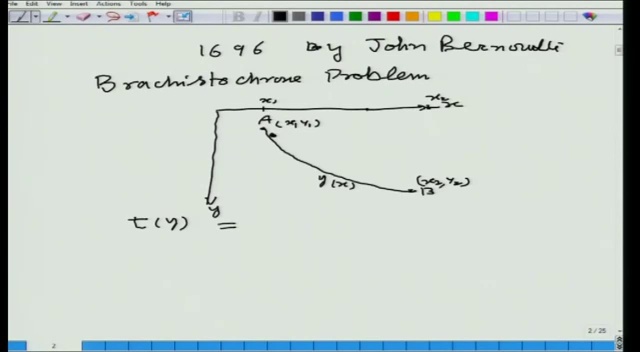 Edit View Insert Actions Tools Help
1696 By John Bernoulli
Brachistochrone Problem
x₁ x₂ x
A (x₁, y₁)
y(x) (x₂, y₂)
B
y
t(y) =
2 / 25
2